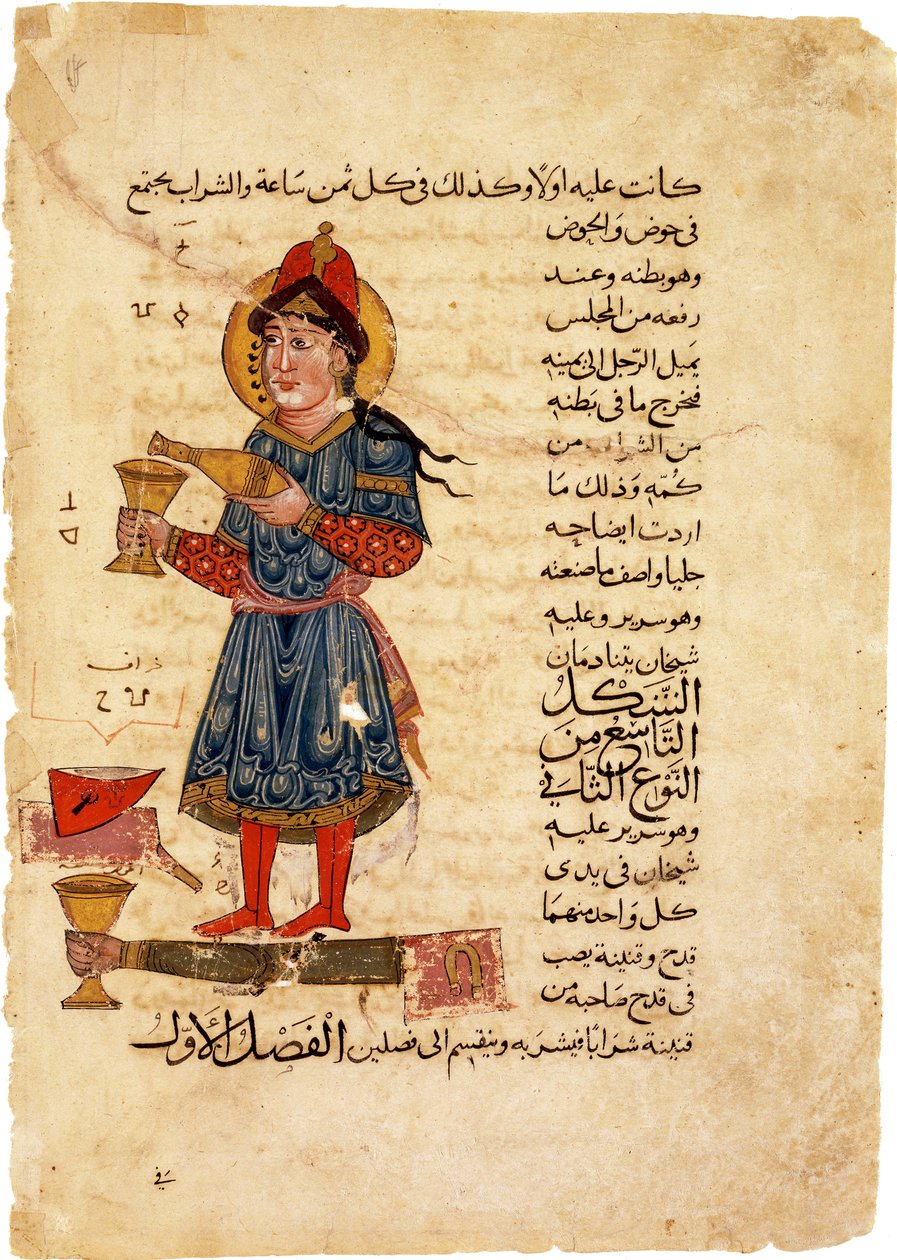 كانت عليه اولًا وكذلك فى كل ثمن ساعة والشراب يجتمع
فى حوض والحوض
وهو بطنه وعند
رفعه من المجلس
يميل الرجل الى يمينه
فيخرج ما فى بطنه
من الشراب من
كمه وذلك ما
اردت ايضاحه
جليا واصف ما صنعته
وهو سرير وعليه
شيخان يتنادمان
الشكل
التاسع من
النوع الثانى
وهو سرير عليه
شيخان فى يدى
كل واحد منهما
قدح وقنينة يصب
فى قدح صاحبه من
قنينة شرابًا فيشربه وينقسم الى فصلين الفصل الأول
فى